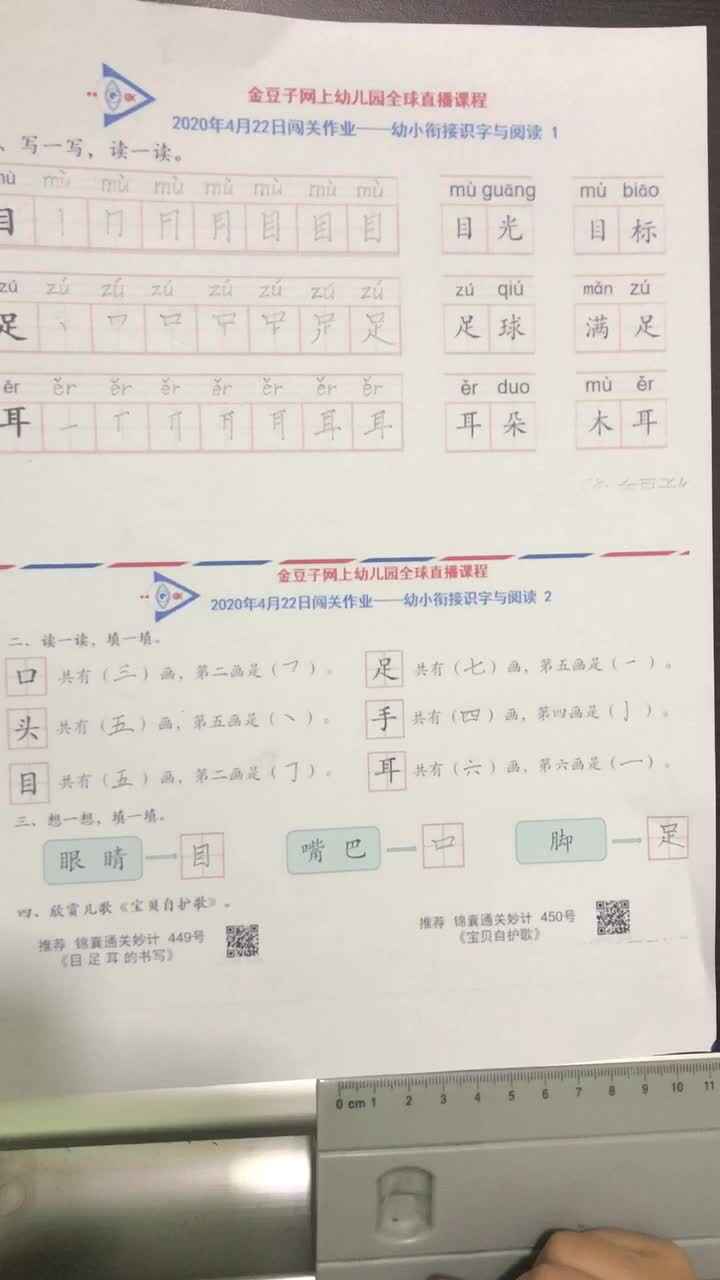 金豆子网上幼儿园全球直播课程
2020年4月22日闯关作业——幼小衔接识字与阅读 1
、写一写，读一读。
mù mù mù mù mù mù mù mù guāng mù biāo
目 丨 冂 月 月 目 目 目 目 光 目 标
zú zú zú zú zú zú zú zú zú qiú mǎn zú
足 丶 口 足 足 球 满 足
ěr ěr ěr ěr ěr ěr ěr ěr ěr duo mù ěr
耳 一 丅 耳 耳 耳 朵 木 耳
金豆子网上幼儿园全球直播课程
2020年4月22日闯关作业——幼小衔接识字与阅读 2
二、读一读，填一填。
口 共有（三）画，第二画是（㇕）。 足 共有（七）画，第五画是（一）。
头 共有（五）画，第五画是（丶）。 手 共有（四）画，第四画是（亅）。
目 共有（五）画，第二画是（𠃌）。 耳 共有（六）画，第六画是（一）。
三、想一想，填一填。
眼 睛 目 嘴 巴 中 脚 足
四、欣赏儿歌《宝贝自护歌》。
推荐 锦囊通关妙计 449号 推荐 锦囊通关妙计 450号
《目 足 耳 的书写》 《宝贝自护歌》
0 cm 1 2 3 4 5 6 7 8 9 10 11